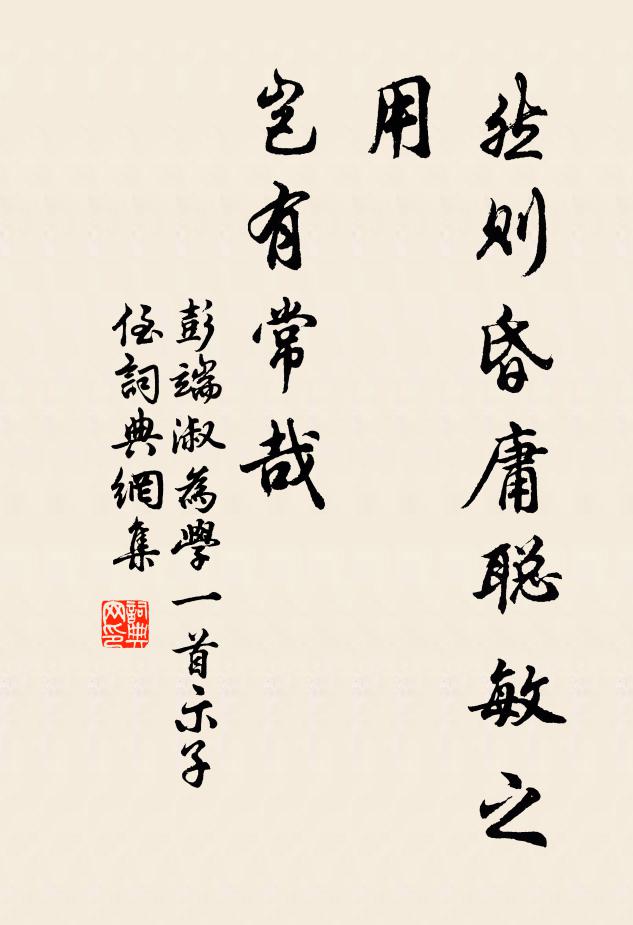 然则昏庸聪敏之
用
岂有常哉
彭端淑為學一首示子
侄詞典網集
詞典
网印